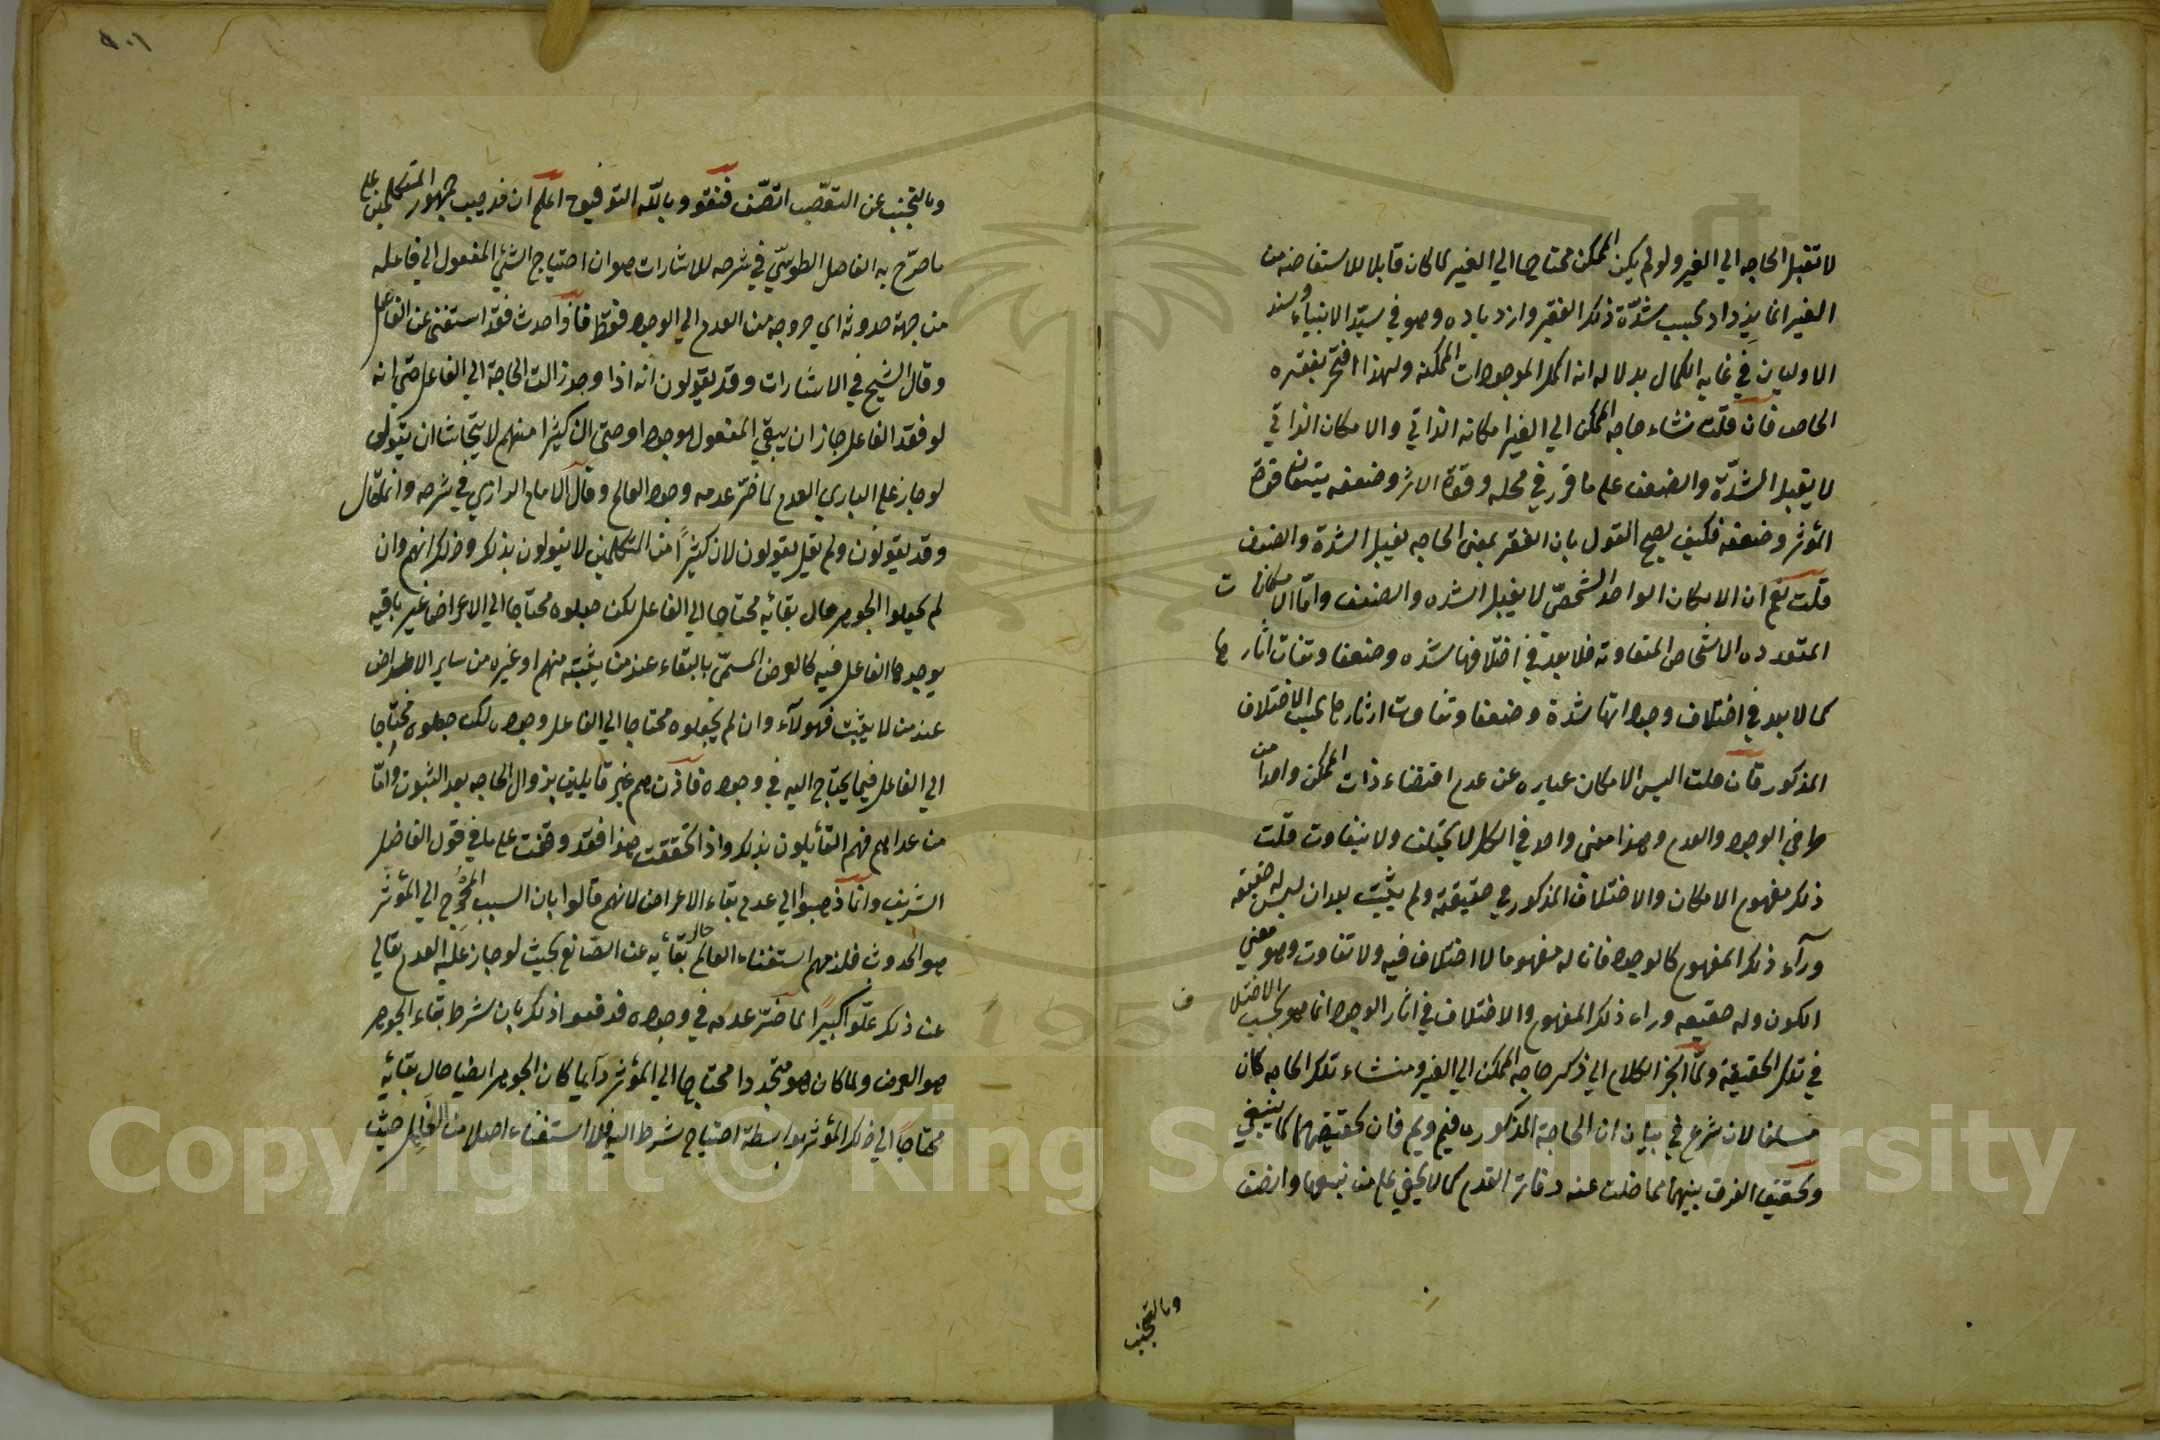 لا تقبل الحاجه الي الغير ولو لم يكن الممكن محتاجا الي الغير لما كان قابلا للاستفاضه من
الغير انما يزداد بحسب شدّة ذلك الفقر وازدياده وهو في سيّد الانبياء وسند
الاولياء في غايه الكمال بدلاله انه اكمل الموجودات الممكنه ولهذا افتخر بفقره
الخاص فان قلت منشاء حاجه الممكن الي الغير امكانه الذاتي والامكان الذاتي
لا يقبل الشدّة والضعف علي ما قرر في محله وقوة الاثر وضعفه يتبعان قوة
المؤثر وضعفه فكيف يصح القول بان الفقر بمعني الحاجه يقبل الشدة والضعف
قلت نعم ان الامكان الواحد الشخصّي لا يقبل الشده والضعف وامّا الامكانات
المتعدده الاشخاص المتفاوته فلا بعد في اختلافها شده وضعفا وتفاوت اثارها
كما لا بعد في اختلاف وجوداتها شدة وضعفا وتفاوت اثارها بحسب الاختلاف
المذكور فان قلت اليس الامكان عباره عن عدم اقتضاء ذات الممكن واحدا من
طرفي الوجود والعدم وهذا معني واحد في الكل لا يختلف ولا يتفاوت قلت
ذلك مفهوم الامكان والاختلاف المذكور في حقيقته ولم يثبت بعد ان ليس له حقيقه
ورآء ذلك المفهوم كالوجود فان له مفهوما لا اختلاف فيه ولا تفاوت وهو معني
الكون وله حقيقه وراء ذلك المفهوم والاختلاف في اثار الوجود انما هو بحسب الاختلاف
في تلك الحقيقة ولمّا انجز الكلام الي ذكر حاجه الممكن الي الغير ومنشاء تلك الحاجه كان
لان شرع في بيان ان الحاجة المذكوره فيم ولم فان تحقيقهما كما ينبغي
وتحقيق الفرق بينهما مما خلت عنه دفاتر القدم كما لا يخفي علي من تتبعها وانصف
وبالتجنب
١٠٥
وبالتجنب عن التعصّب اتّصف فنقو وبالله التوفيق اعلم ان مذهب جمهور المتكلمين علي
ما صرّح به الفاضل الطوسيّ في شرحه للاشارات هو ان احتياج الشئ المفعول الي فاعله
من جهة حدوثه اي خروجه من العدم الي الوجود فقط فاذا حدث فقد استغني عن الفاعل
وقال الشيخ في الاشارات وقد يقولون انه اذا وجد زالت الحاجة الي الفاعل حتي انه
لو فقد الفاعل جاز ان يبقي المفعول موجودا وحتي ان كثيرا منهم لا يتحاشي ان يقول
لو جاز علي الباري العدم لما ضرّ عدمه وجود العالم وقال الامام الرازي في شرحه وانما قال
وقد يقولون ولم يقل يقولون لان كثيرًا من المتكلمين لا يقولون بذلك وذلك انهم وان
لم يجعلوا الجوهر حال بقائه محتاجا الي الفاعل لكن جعلوه محتاجا الي الاعراض غير باقيه
يوجدها الفاعل فيه كالعرض المسمّي بالبقاء عند من يثبته منهم او غيره من ساير الاعراض
عند من لا يثبت فهولآء وان لم يجعلوه محتاجا الي الفاعل وجوده لكن جعلوه محتاجا
الي الفاعل فيما يحتاج اليه في وجوده فاذن هم غير قايلين بزوال الحاجه بعد الثبوت وامّا
من عداهم فهم القائلون بذلك واذا تحققت هذا فقد وقفت علي ما في قول الفاضل
الشريف وانما ذهبوا الي عدم بقاء الاعراض لانهم قالوا بان السبب المحوج الي المؤثر
هو الحدوث فلزمهم استغناء العالم حال بقائه عن الصانع بحيث لو جاز عليه العدم تعالي
عن ذلك علوّا كبيرًا لما ضرّ عدمه في وجوده فدفعوا ذلك بان شرط بقاء الجوهر
هو العرض ولما كان هو متجددا محتاجا الي المؤثر دآيما كان الجوهر ايضا حال بقائه
محتاجًا الي ذلك المؤثر بواسطة احتياج شرطه اليه فلا استغناء اصلا من الفاعل حيث